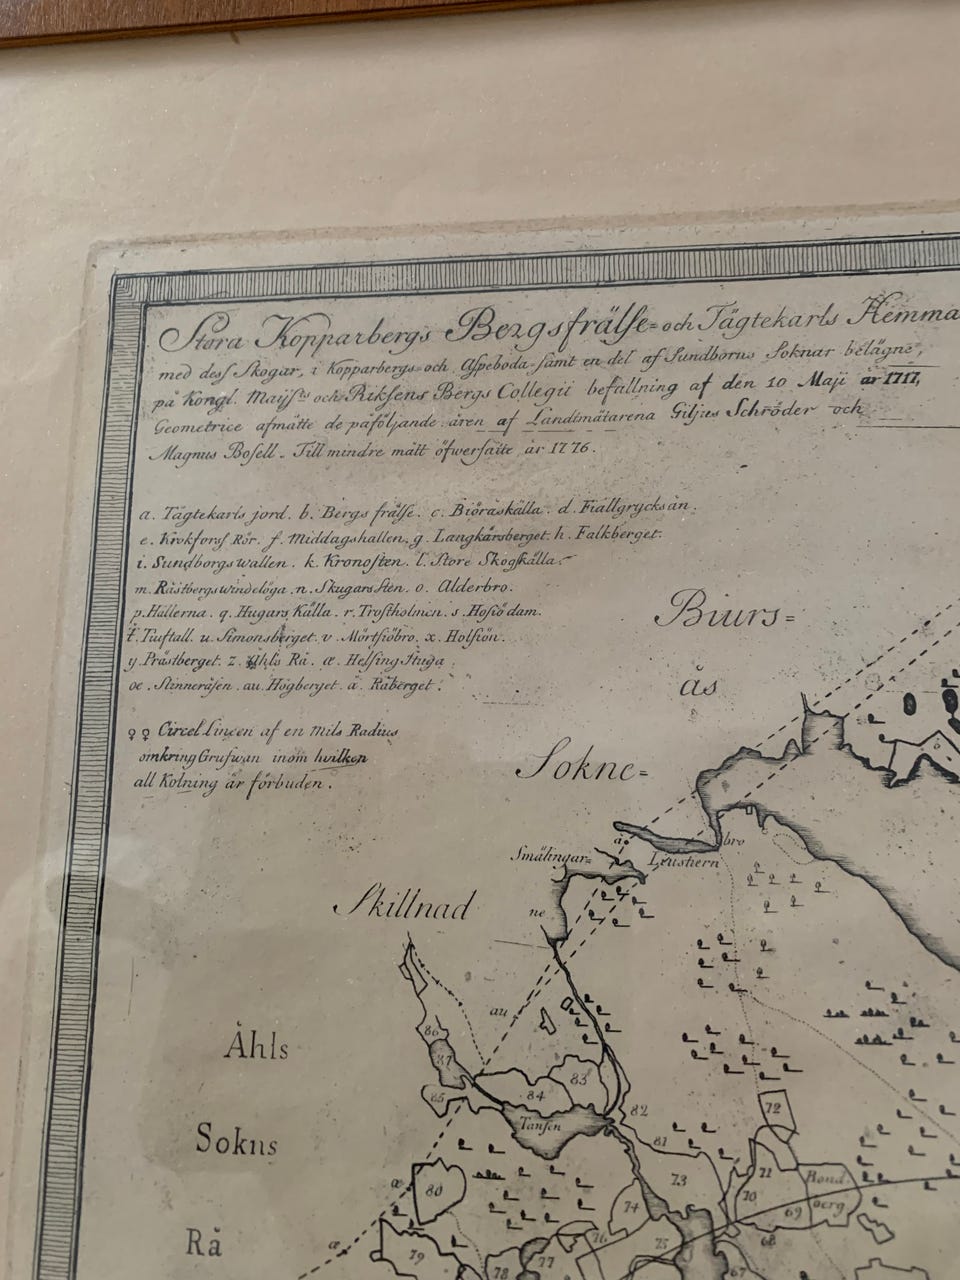 Stora Kopparbergs Bergsfrälse= och Tägtekarls Hemma
med dess Skogar, i Kopparbergs- och Aspeboda- samt en del af Sundborns Soknar belägne,
på Kongl. Maijsts och Riksens Bergs Collegii befallning af den 10 Maji år 1717,
Geometrice afmätte de påföljande åren af Landtmätarena Giljus Schröder och
Magnus Bosell. Till mindre mått öfwersatte år 1776.
a. Tägtekarls jord. b. Bergs frälse. c. Bioråskälla. d. Fiällgrycksån.
e. Krokfors Rör. f. Middagshallen. g. Langkårsberget. h. Falkberget.
i. Sundborgs wallen. k. Kronosten. l. Store Skogskälla.
m. Rästbergswindelöga. n. Skugars Sten. o. Alderbro.
p. Hällerna. q. Hugars Källa. r. Trostholmen. s. Hosiödam.
t. Tiuftall. u. Simonsberget. v. Mörtsiöbro. x. Holsiön.
y. Prästberget. z. Åhls Rå. æ. Helsing Stuga.
oe. Stinneråsen. au. Högberget. å. Råberget.
♀♀ Circel Lineen af en Mils Radius
omkring Grufwan inom hvilken
all Kolning är förbuden.
Biurs=
ås
Sokne=
å
bro
Smälingar=
Leustiern
Skillnad
ne
au
Åhls
86
87
83
85
84
82
72
Tansen
Sokns
81
71
æ
80
73
70
Rond
berg
74
69
Rå
æ
79
76
75
68
78
77
67